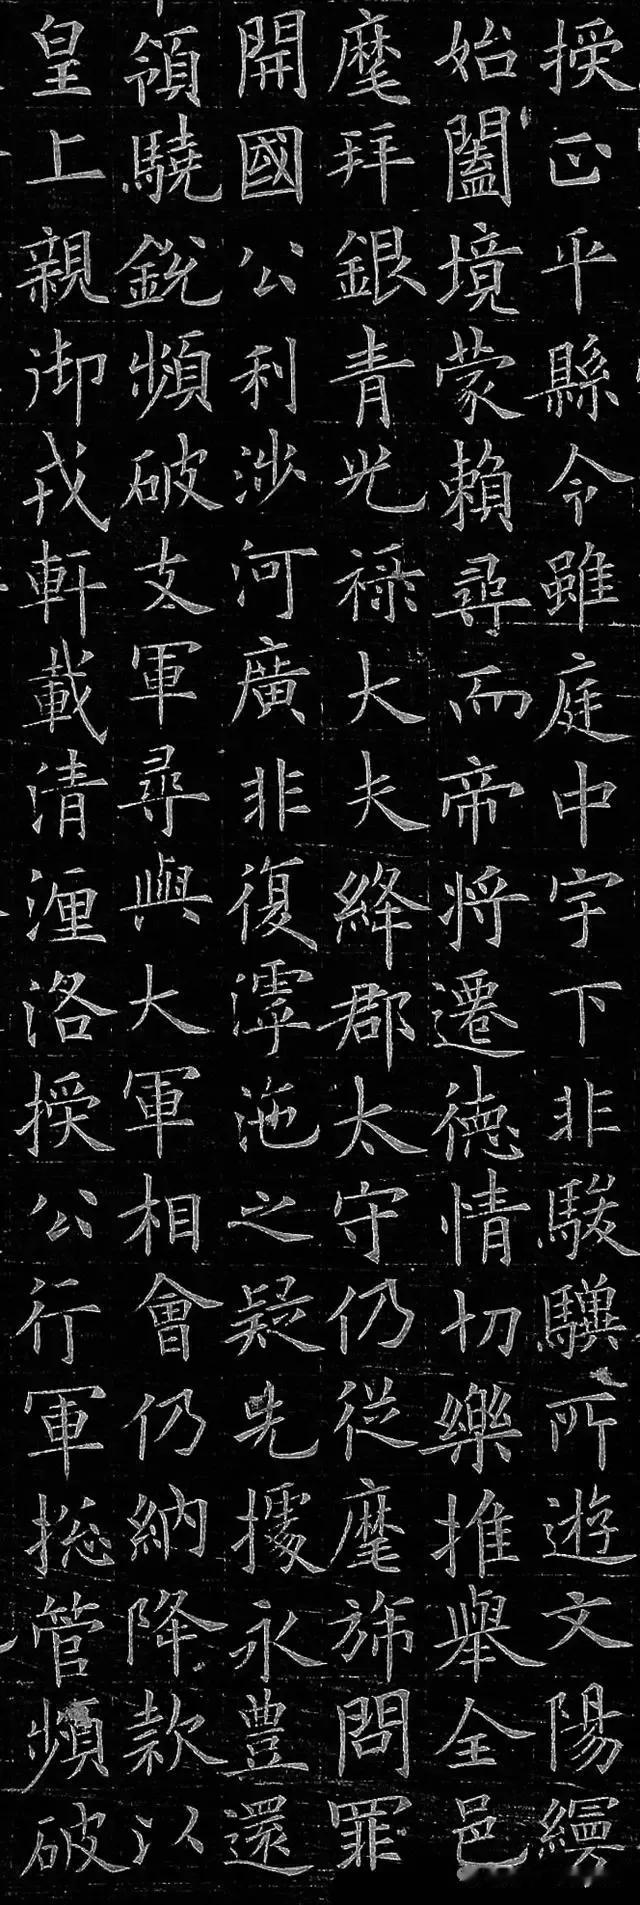 授正平縣令雖庭中宇下非駿驥所遊文陽續
始闔境蒙賴尋而帝將遷德情切樂推舉全邑
麾拜銀青光祿大夫絳郡太守仍從麾旆問罪
開國公利涉河廣非復滹沲之疑先據永豊還
領驍銳頻破支軍尋與大軍相會仍納降款以
皇上親御戎軒載清湹洛授公行軍揔管頻破